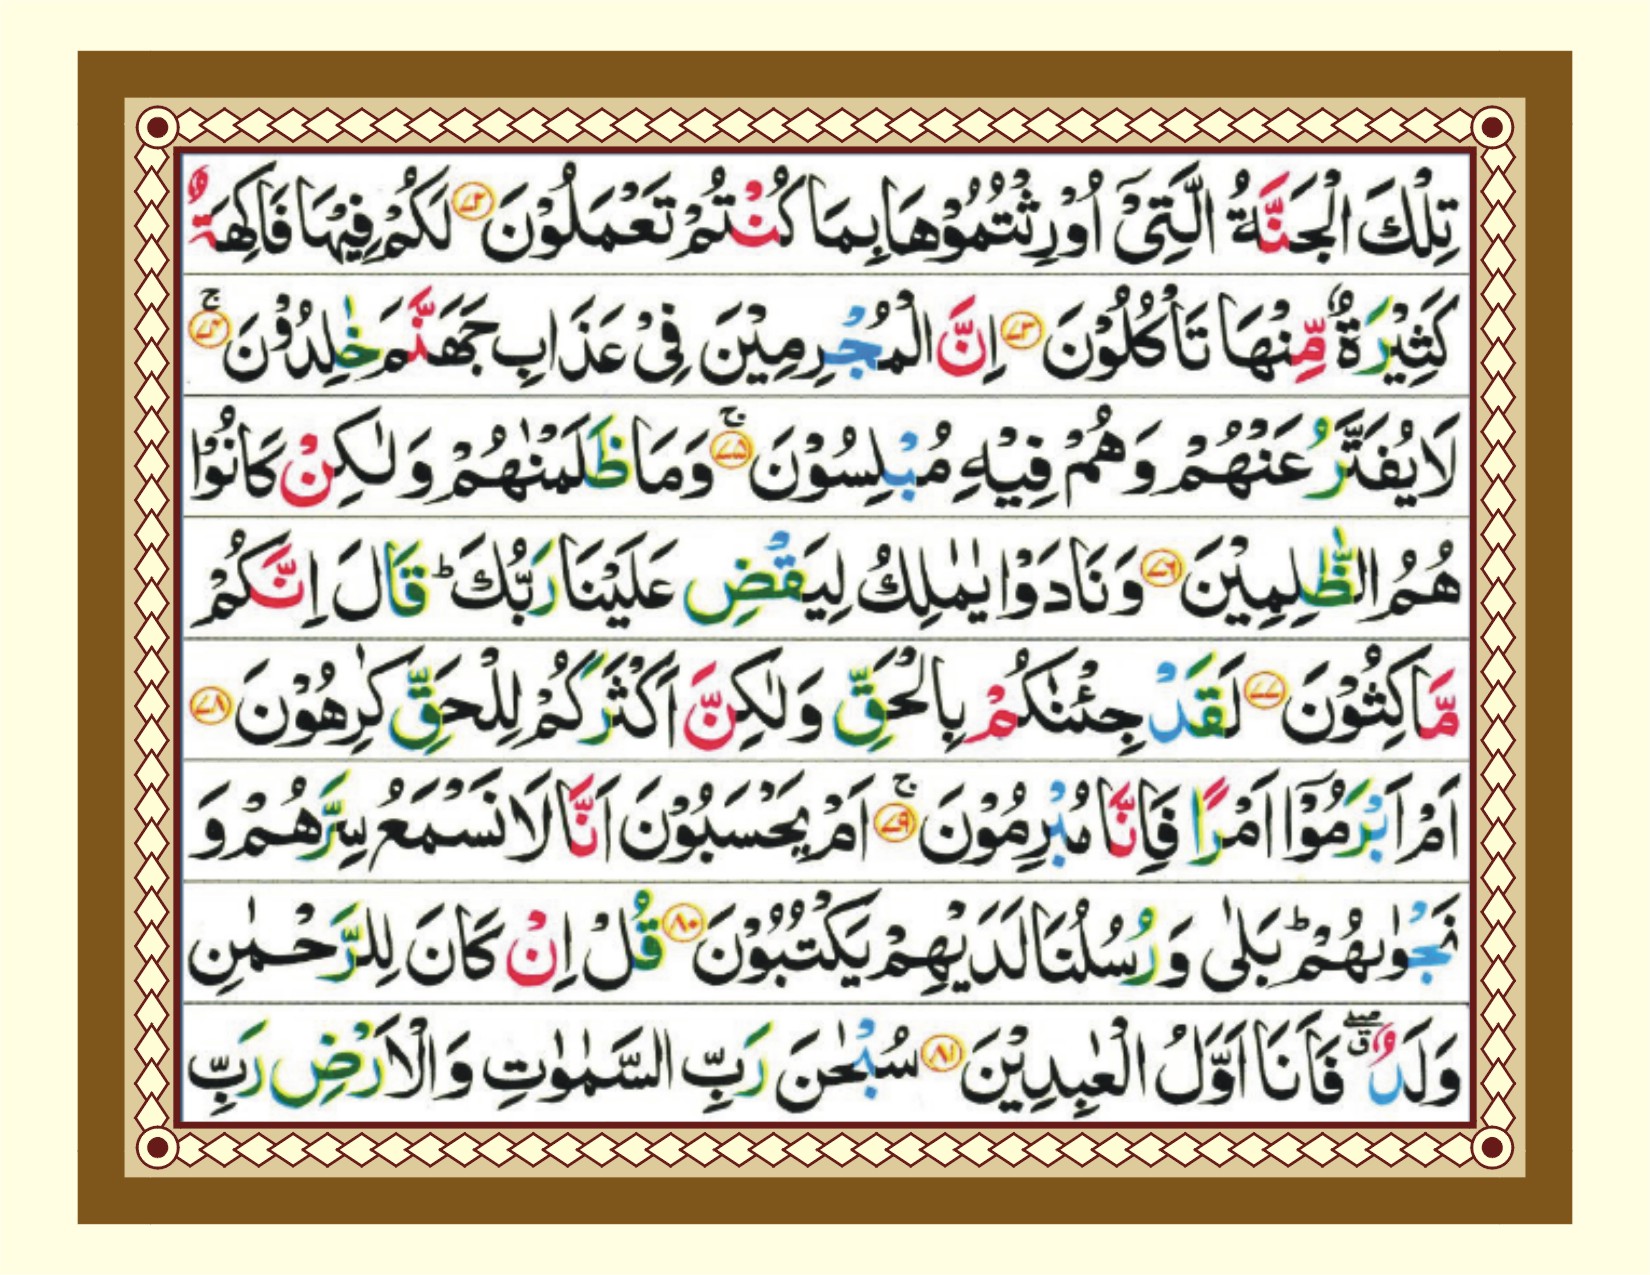 تِلْكَ الْجَنَّةُ الَّتِیْۤ اُوْرِثْتُمُوْهَا بِمَا كُنْتُمْ تَعْمَلُوْنَ ۷۲ لَكُمْ فِیْهَا فَاكِهَةٌ
كَثِیْرَةٌ مِّنْهَا تَاْكُلُوْنَ ۷۳ اِنَّ الْمُجْرِمِیْنَ فِیْ عَذَابِ جَهَنَّمَ خٰلِدُوْنَ ۷۴ۚ
لَا یُفَتَّرُ عَنْهُمْ وَهُمْ فِیْهِ مُبْلِسُوْنَ ۷۵ۚ وَمَا ظَلَمْنٰهُمْ وَلٰكِنْ كَانُوْا
هُمُ الظّٰلِمِیْنَ ۷۶ وَنَادَوْا یٰمٰلِكُ لِیَقْضِ عَلَیْنَا رَبُّكَ ؕ قَالَ اِنَّكُمْ
مَّاكِثُوْنَ ۷۷ لَقَدْ جِئْنٰكُمْ بِالْحَقِّ وَلٰكِنَّ اَكْثَرَكُمْ لِلْحَقِّ كٰرِهُوْنَ ۷۸
اَمْ اَبْرَمُوْۤا اَمْرًا فَاِنَّا مُبْرِمُوْنَ ۷۹ۚ اَمْ یَحْسَبُوْنَ اَنَّا لَا نَسْمَعُ سِرَّهُمْ وَ
نَجْوٰىهُمْ ؕ بَلٰی وَرُسُلُنَا لَدَیْهِمْ یَكْتُبُوْنَ ۸۰ قُلْ اِنْ كَانَ لِلرَّحْمٰنِ
وَلَدٌ ۖۗ فَاَنَا اَوَّلُ الْعٰبِدِیْنَ ۸۱ سُبْحٰنَ رَبِّ السَّمٰوٰتِ وَالْاَرْضِ رَبِّ